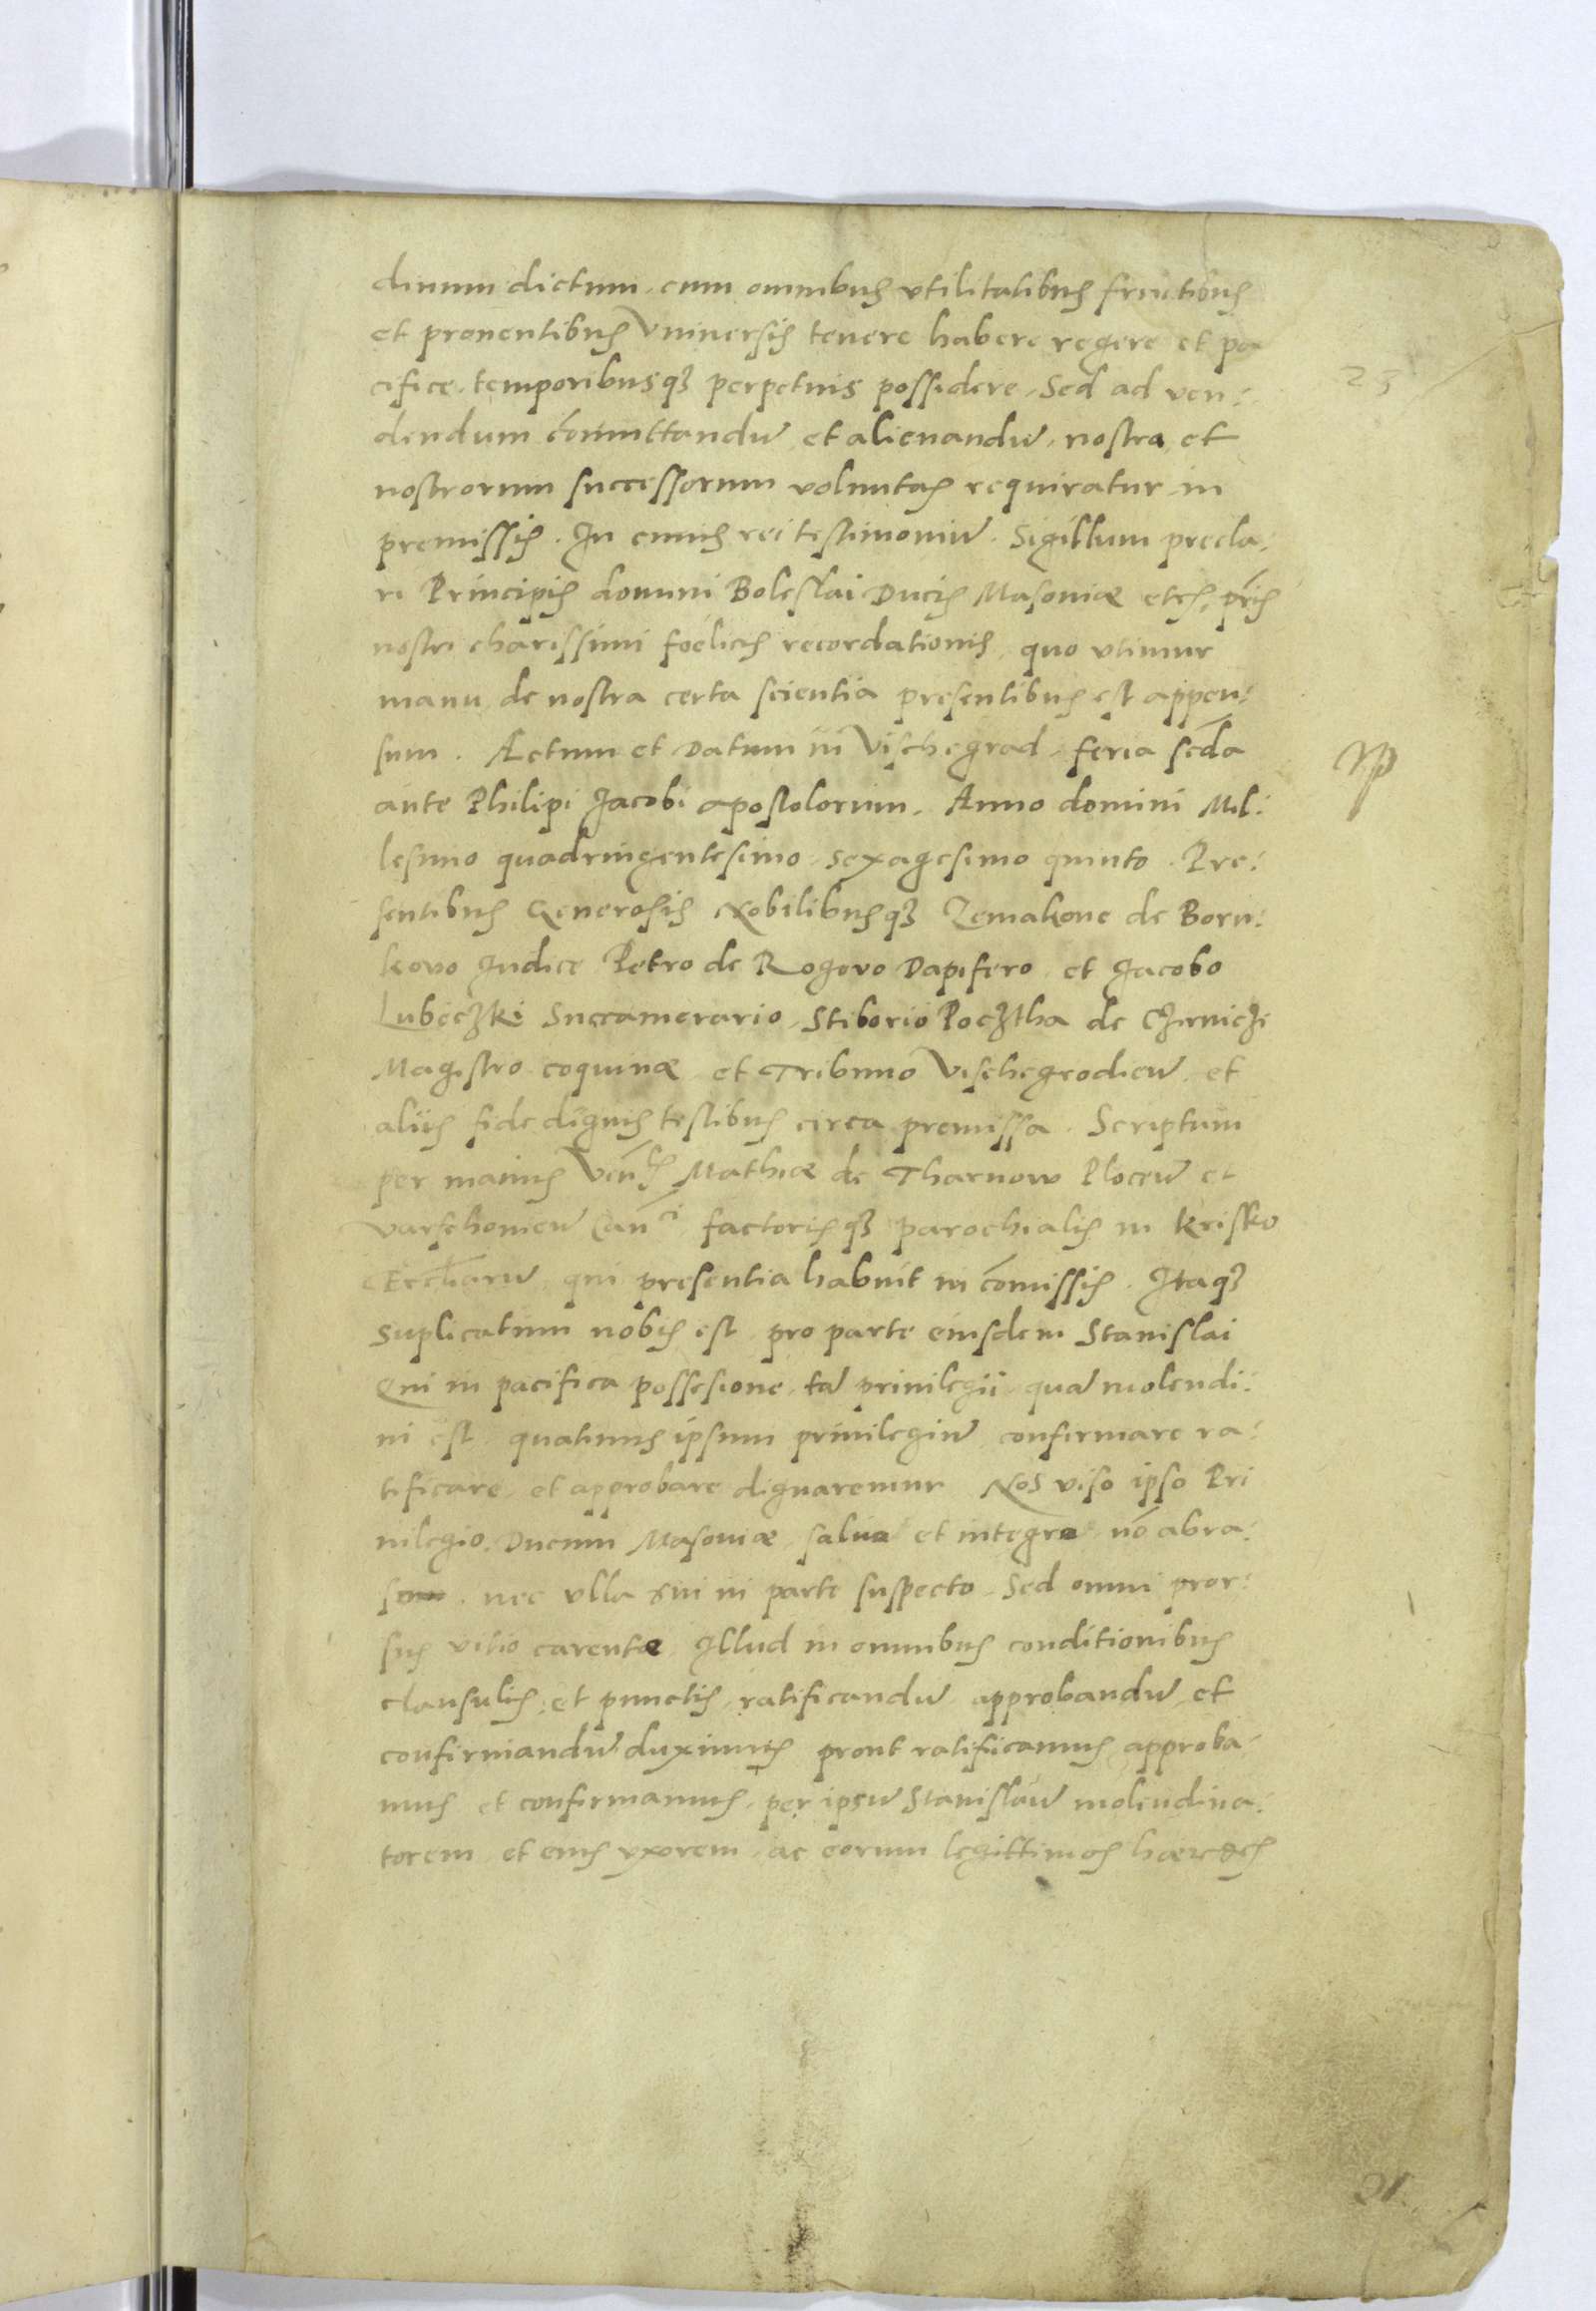 dinum dictum, cum omnibus vtilitatibus fructibus
et prouentibus Vniuersis tenere habere regere et pa
cifice temporibusq3 perpetuis possidere, Sed ad ven:
dendum cōmuttandū et alienandū, nostra et
nostrorum successorum voluntas requiratur in
premissis. In cuius rei testimoniū. Sigillum precla:
ri Principis domini Boleslai Ducis Masoviæ etc̄s, pr̄is
nostri charissimi foelicis recordationis, quo vtimur
manu de nostra certa scientia presentibus est appen:
sum. Actum et Datum in Vischegrad, feria sec̄da
ante Philipi Jacobi apostolorum. Anno domini Mil:
lesimo quadringentesimo sexagesimo quinto. Pre:
sentibus Generosis Nobilibusq3 Zemakone de Boru:
kovo Judice Petro de Rogovo Dapifero, et Jacobo
Lubeczki Succamerario, Stiborio Pocztha de Czirniczi
Magistro coquinæ et Tribuno Vischegrodieñ et
aliis fide dignis testibus circa premissa. Scriptum
per manus Veñlis Mathiæ de Tharnow Ploceñ et
Varschonieñ Cañci factorisq3 parochialis in Krisko
Eccl̄iarū, qui presentia habuit in cōmissis. Itaq3
suplicatum nobis est pro parte eiusdem Stanislai
Qui in pacifica possesione, tā priuilegii quā molendi:
ni est quatinus ipsum priuilegiū confirmare ra:
tificare, et approbare dignaremur Nos viso ipso Pri
uilegio Ducum Masoviæ, saluo et integro nō abra:
so, nec vlla sui in parte suspecto, Sed omni pror:
sus vitio carente Illud in omnibus conditionibus
clausulis, et punctis, ratificandū approbandū et
confirmandū duximus prout ratificamus approba:
mus et confirmamus, per ipsū Stanislaū molendina:
torem et eius vxorem, ac eorum legittimos hæredes
23
91